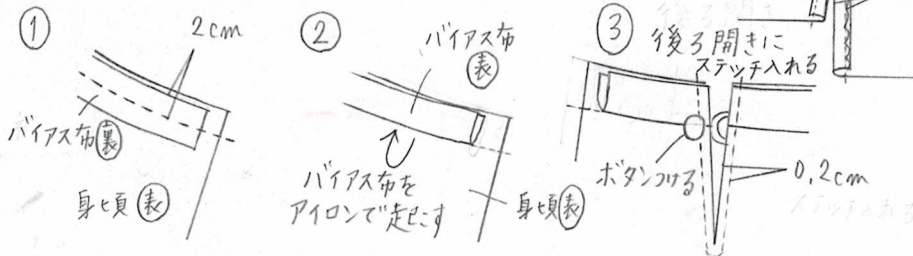 ①
2cm
バイアス布裏
身頃表
②
バイアス布
表
バイアス布を
アイロンで起こす
身頃表
③
後ろ開きに
ステッチ入れる
ボタンつける
0.2cm